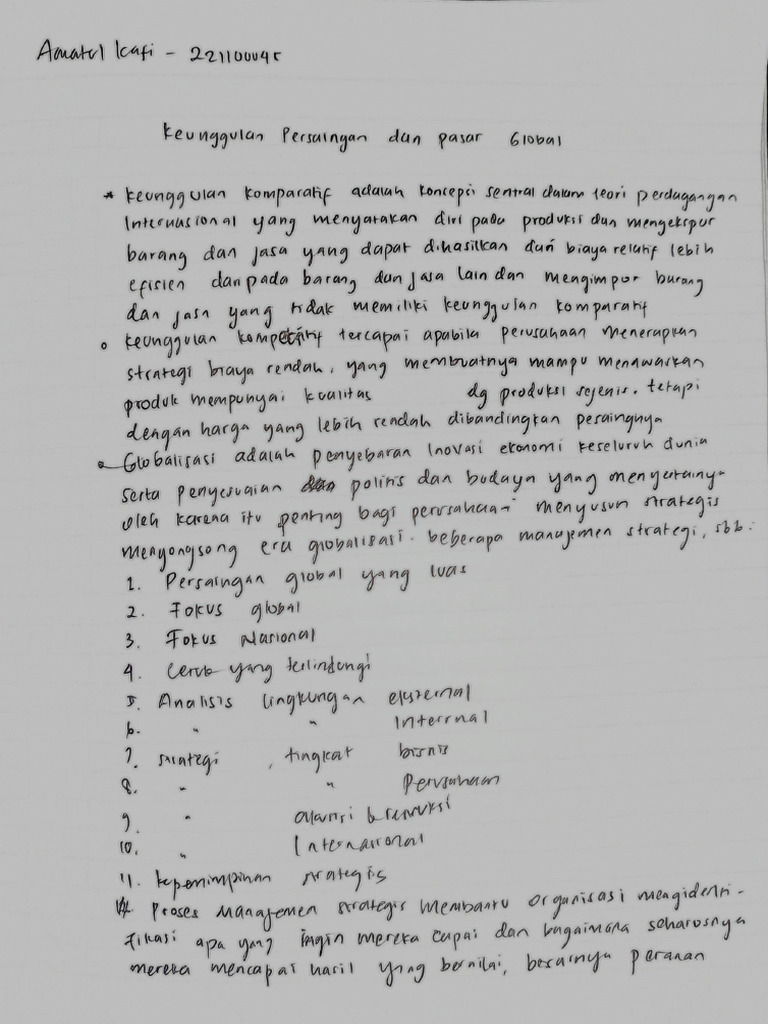 Amatul Kafi - 221100045
Keunggulan Persaingan dan pasar Global
* Keunggulan komparatif adalah koncepsi sentral dalam teori perdagangan
Internasional yang menyatakan diri pada produksi dan mengekspor
barang dan jasa yang dapat dihasilkan dgn biaya relatif lebih
efisien daripada barang dan jasa lain dan mengimpor barang
dan jasa yang tidak memiliki keunggulan komparatif
o keunggulan kompetitif tercapai apabila perusahaan menerapkan
strategi biaya rendah, yang membuatnya mampu menawarkan
produk mempunyai kualitas dg produksi sejenis. tetapi
dengan harga yang lebih rendah dibandingkan pesaingnya
o Globalisasi adalah penyebaran Inovasi ekonomi keseluruh dunia
serta penyesuaian politis dan budaya yang menyertainya
oleh karena itu penting bagi perusahaan menyusun strategis
menyongsong era globalisasi. beberapa manajemen strategi, sbb:
1. Persaingan global yang luas
2. Fokus global
3. Fokus Nasional
4. Ceruk yang terlindungi
5. Analisis lingkungan eksternal
6. " " Internal
7. strategi, tingkat bisnis
8. " " Perusahaan
9. " akuisisi
10. " Internasional
11. kepemimpinan strategis
Proses manajemen strategis membantu organisasi mengidenti-
fikasi apa yang ingin mereka capai dan bagaimana seharusnya
mereka mencapai hasil yang bernilai, besarnya peranan